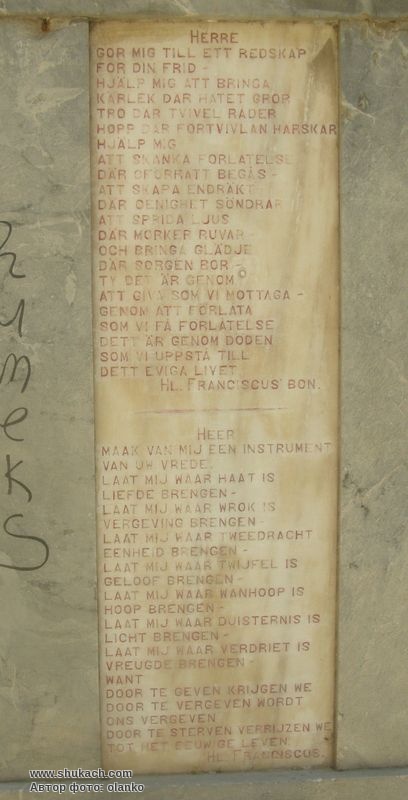 HERRE
GOR MIG TILL ETT REDSKAP
FOR DIN FRID -
HJÄLP MIG ATT BRINGA
KARLEK DAR HATET GROR
TRO DAR TVIVEL RADER
HOPP DAR FORTVIVLAN HARSKAR
HJALP MIG
ATT SKANKA FORLATELSE
DÄR OFORRATT BEGÅS -
ATT SKAPA ENDRÄKT
DAR OENIGHET SÖNDRAR
ATT SPRIDA LJUS
DAR MORKER RUVAR -
OCH BRINGA GLÄDJE
DAR SORGEN BOR -
TY DET ÄR GENOM
ATT GIVA SOM VI MOTTAGA -
GENOM ATT FÖRLATA
SOM VI FÅ FORLATELSE
DETT ÄR GENOM DODEN
SOM VI UPPSTÅ TILL
DETT EVIGA LIVET
HL. FRANCISCUS' BON.
HEER
MAAK VAN MIJ EEN INSTRUMENT
VAN UW VREDE.
LAAT MIJ WAAR HAAT IS
LIEFDE BRENGEN -
LAAT MIJ WAAR WROK IS
VERGEVING BRENGEN -
LAAT MIJ WAAR TWEEDRACHT
EENHEID BRENGEN -
LAAT MIJ WAAR TWIJFEL IS
GELOOF BRENGEN -
LAAT MIJ WAAR WANHOOP IS
HOOP BRENGEN -
LAAT MIJ WAAR DUISTERNIS IS
LICHT BRENGEN -
LAAT MIJ WAAR VERDRIET IS
VREUGDE BRENGEN -
WANT
DOOR TE GEVEN KRIJGEN WE
DOOR TE VERGEVEN WORDT
ONS VERGEVEN
DOOR TE STERVEN VERRIJZEN WE
TOT HET EEUWIGE LEVEN
HL. FRANCISCUS.
www.shukach.com
Автор фото: olanko